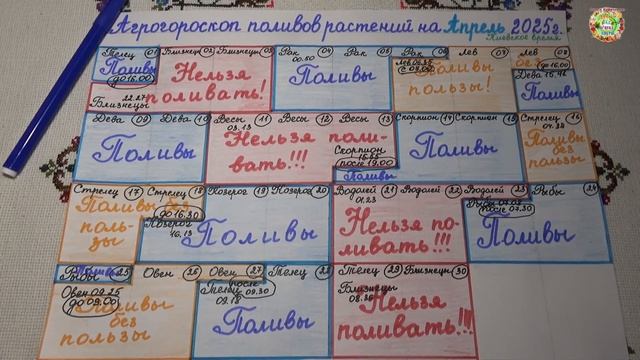 Агрогороскоп поливов растений на Апрель 2025г.
Киевское время
Телец 01 Близнецы 02 Близнецы 03 Рак 04 Рак 05 Рак 06 Лев 07 Лев 08
Поливы
до 16.00
22.27
Близнецы
Нельзя
поливать!
00.50
Поливы
Лев
с 08.00
Поливы
пользы!
без
до 16.00
Дева
Поливы
Дева 09 Дева 10 Весы 11 Весы 12 Весы 13 Скорпион 14 Скорпион 15 Стрелец 16
Поливы
03.13
Нельзя поли-
вать!!!
Скорпион
после 19.00
Поливы
Поливы
Поливы
без
пользы
Стрелец 17 Стрелец 18 Козерог 19 Козерог 20 Водолей 21 Водолей 22 Водолей 23 Рыбы 24
Поливы без
поль-
зы
до 16.30
Козерог
16.13
Поливы
01.23
Нельзя по-
ливать!!!
Рыбы
после 07.30
Поливы
Рыбы 25 Овен 26 Овен 27 Телец 28 Телец 29 Близнецы 30
Поливы
Овен 09.25
до 09.00
Поливы
без
пользы
после
Телец 09.30
09.18
Поливы
Близнецы
Нельзя
поливать!!!